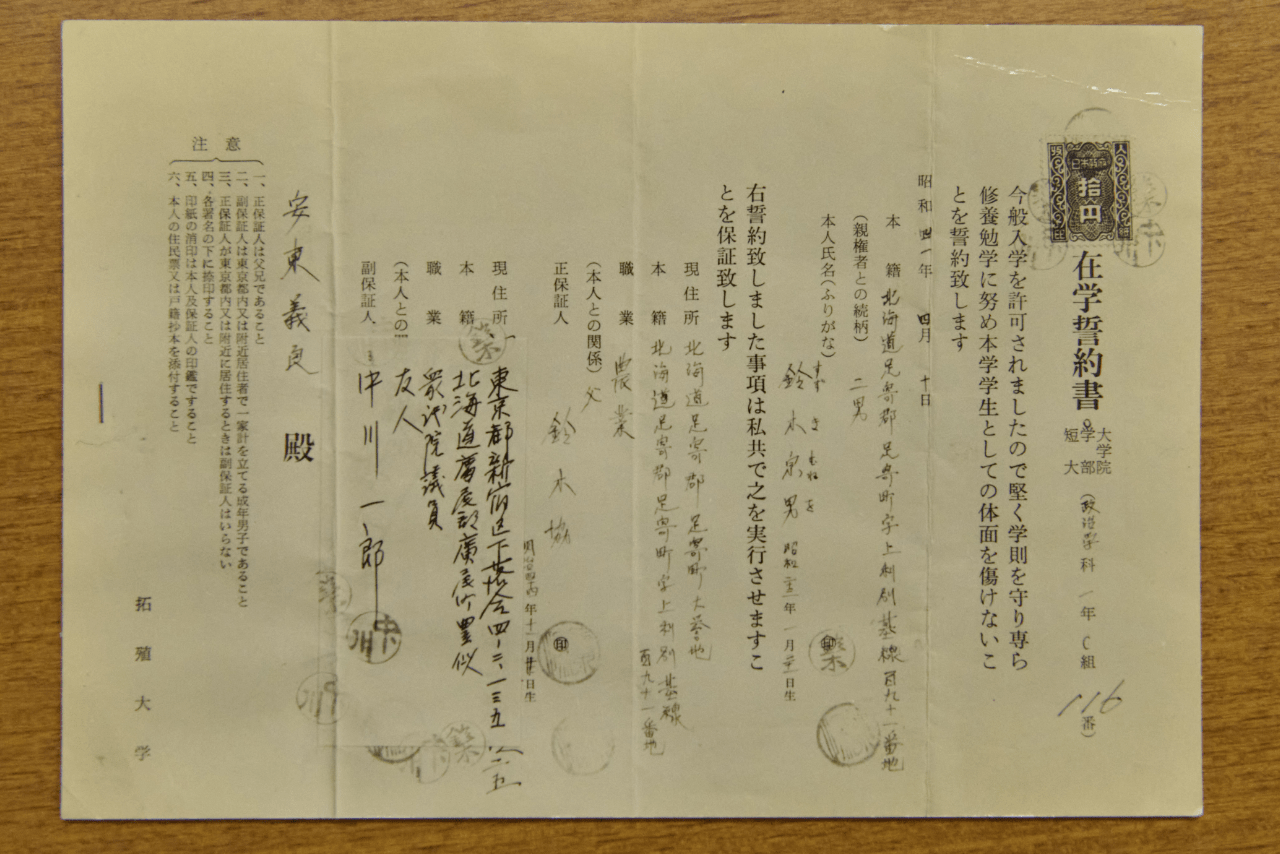 収入印紙
日本政府
拾円
在学誓約書
大学院
学部
短大
(政治学科一年C組
116
番)
今般入学を許可されましたので堅く学則を守り専ら
修養勉学に努め本学学生としての体面を傷けないこ
とを誓約致します
昭和四一年四月十日
本籍 北海道足寄郡足寄町字上利別基線百九十一番地
(親権者との続柄) 二男
本人氏名(ふりがな) 鈴木宗男
すずきむねを
昭和 年一月 日生
印
右誓約致しました事項は私共で之を実行させますこ
とを保証致します
現住所 北海道足寄郡足寄町大誉地
本籍 北海道足寄郡足寄町字上利別基線
百九十一番地
職業 農業
(本人との関係) 父
正保証人 鈴木
印
明治 年十一月 日生
現住所 東京都新宿区下落合四ノ二、一三九
本籍 北海道廣尾郡廣尾町豊似
職業 衆議院議員
(本人との 友人
副保証人 中川一郎
中川
安東義良 殿
注意
一、正保証人は父兄であること
二、副保証人は東京都内又は附近居住者で一家計を立てる成年男子であること
三、正保証人が東京都内又は附近に居住するときは副保証人はいらない
四、各署名の下に捺印すること
五、印紙の消印は本人及保証人の印鑑ですること
六、本人の住民票又は戸籍抄本を添付すること
拓殖大学